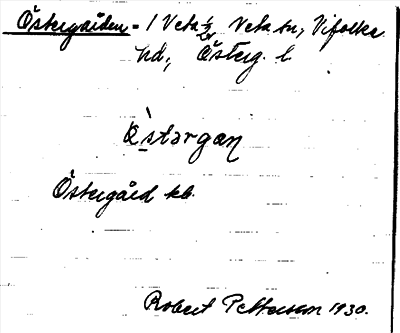 Östergården - 1 Veta ½ Veta sn, Vifolka
hd, Österg. l
Östərgan
Östergård kb.
Robert Petterson 1930.